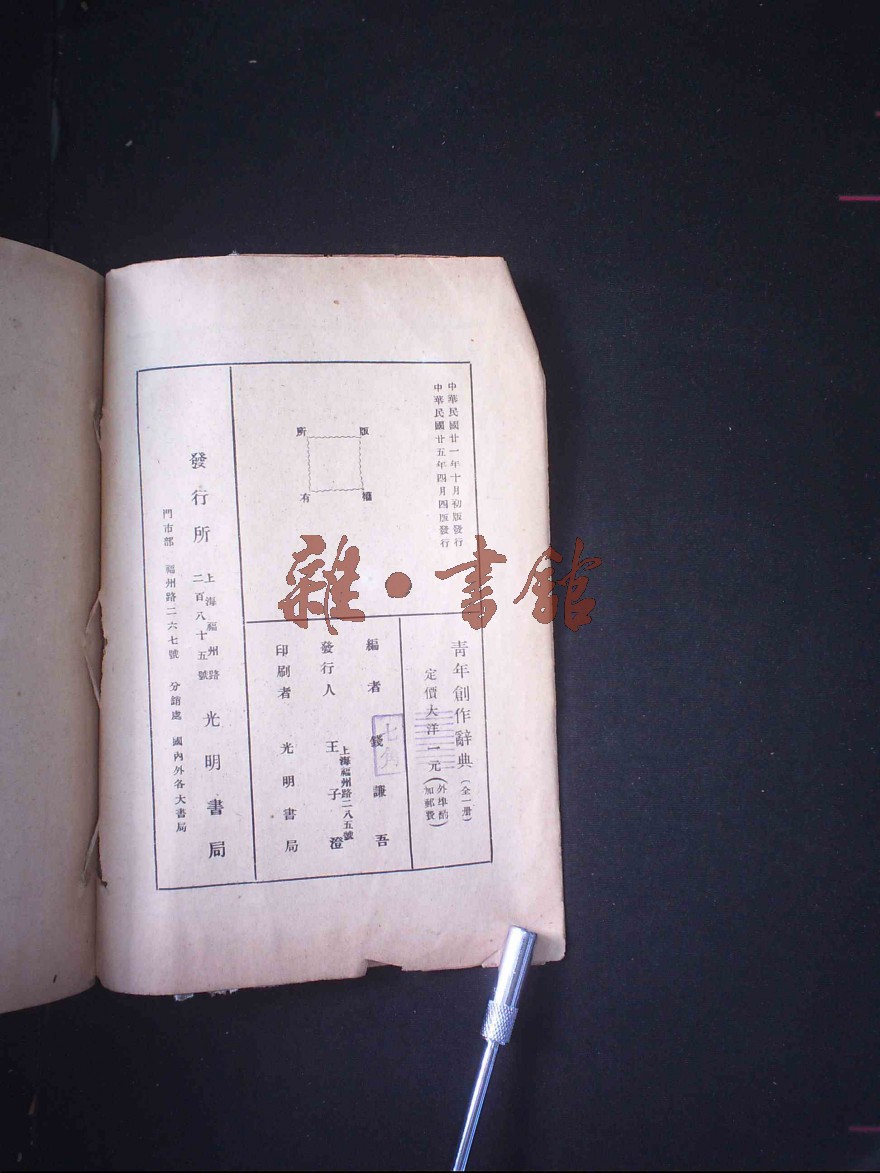 中華民國廿一年十月初版發行
中華民國廿五年四月四版發行
版權所有
靑年創作辭典(全一册)
定價大洋一元(外埠酌加郵費)
七角
編者 錢謙吾
發行人 王子澄
上海福州路二八五號
印刷者 光明書局
發行所 上海福州路二百八十五號 光明書局
門市部 福州路二六七號 分銷處 國內外各大書局
雜·書館